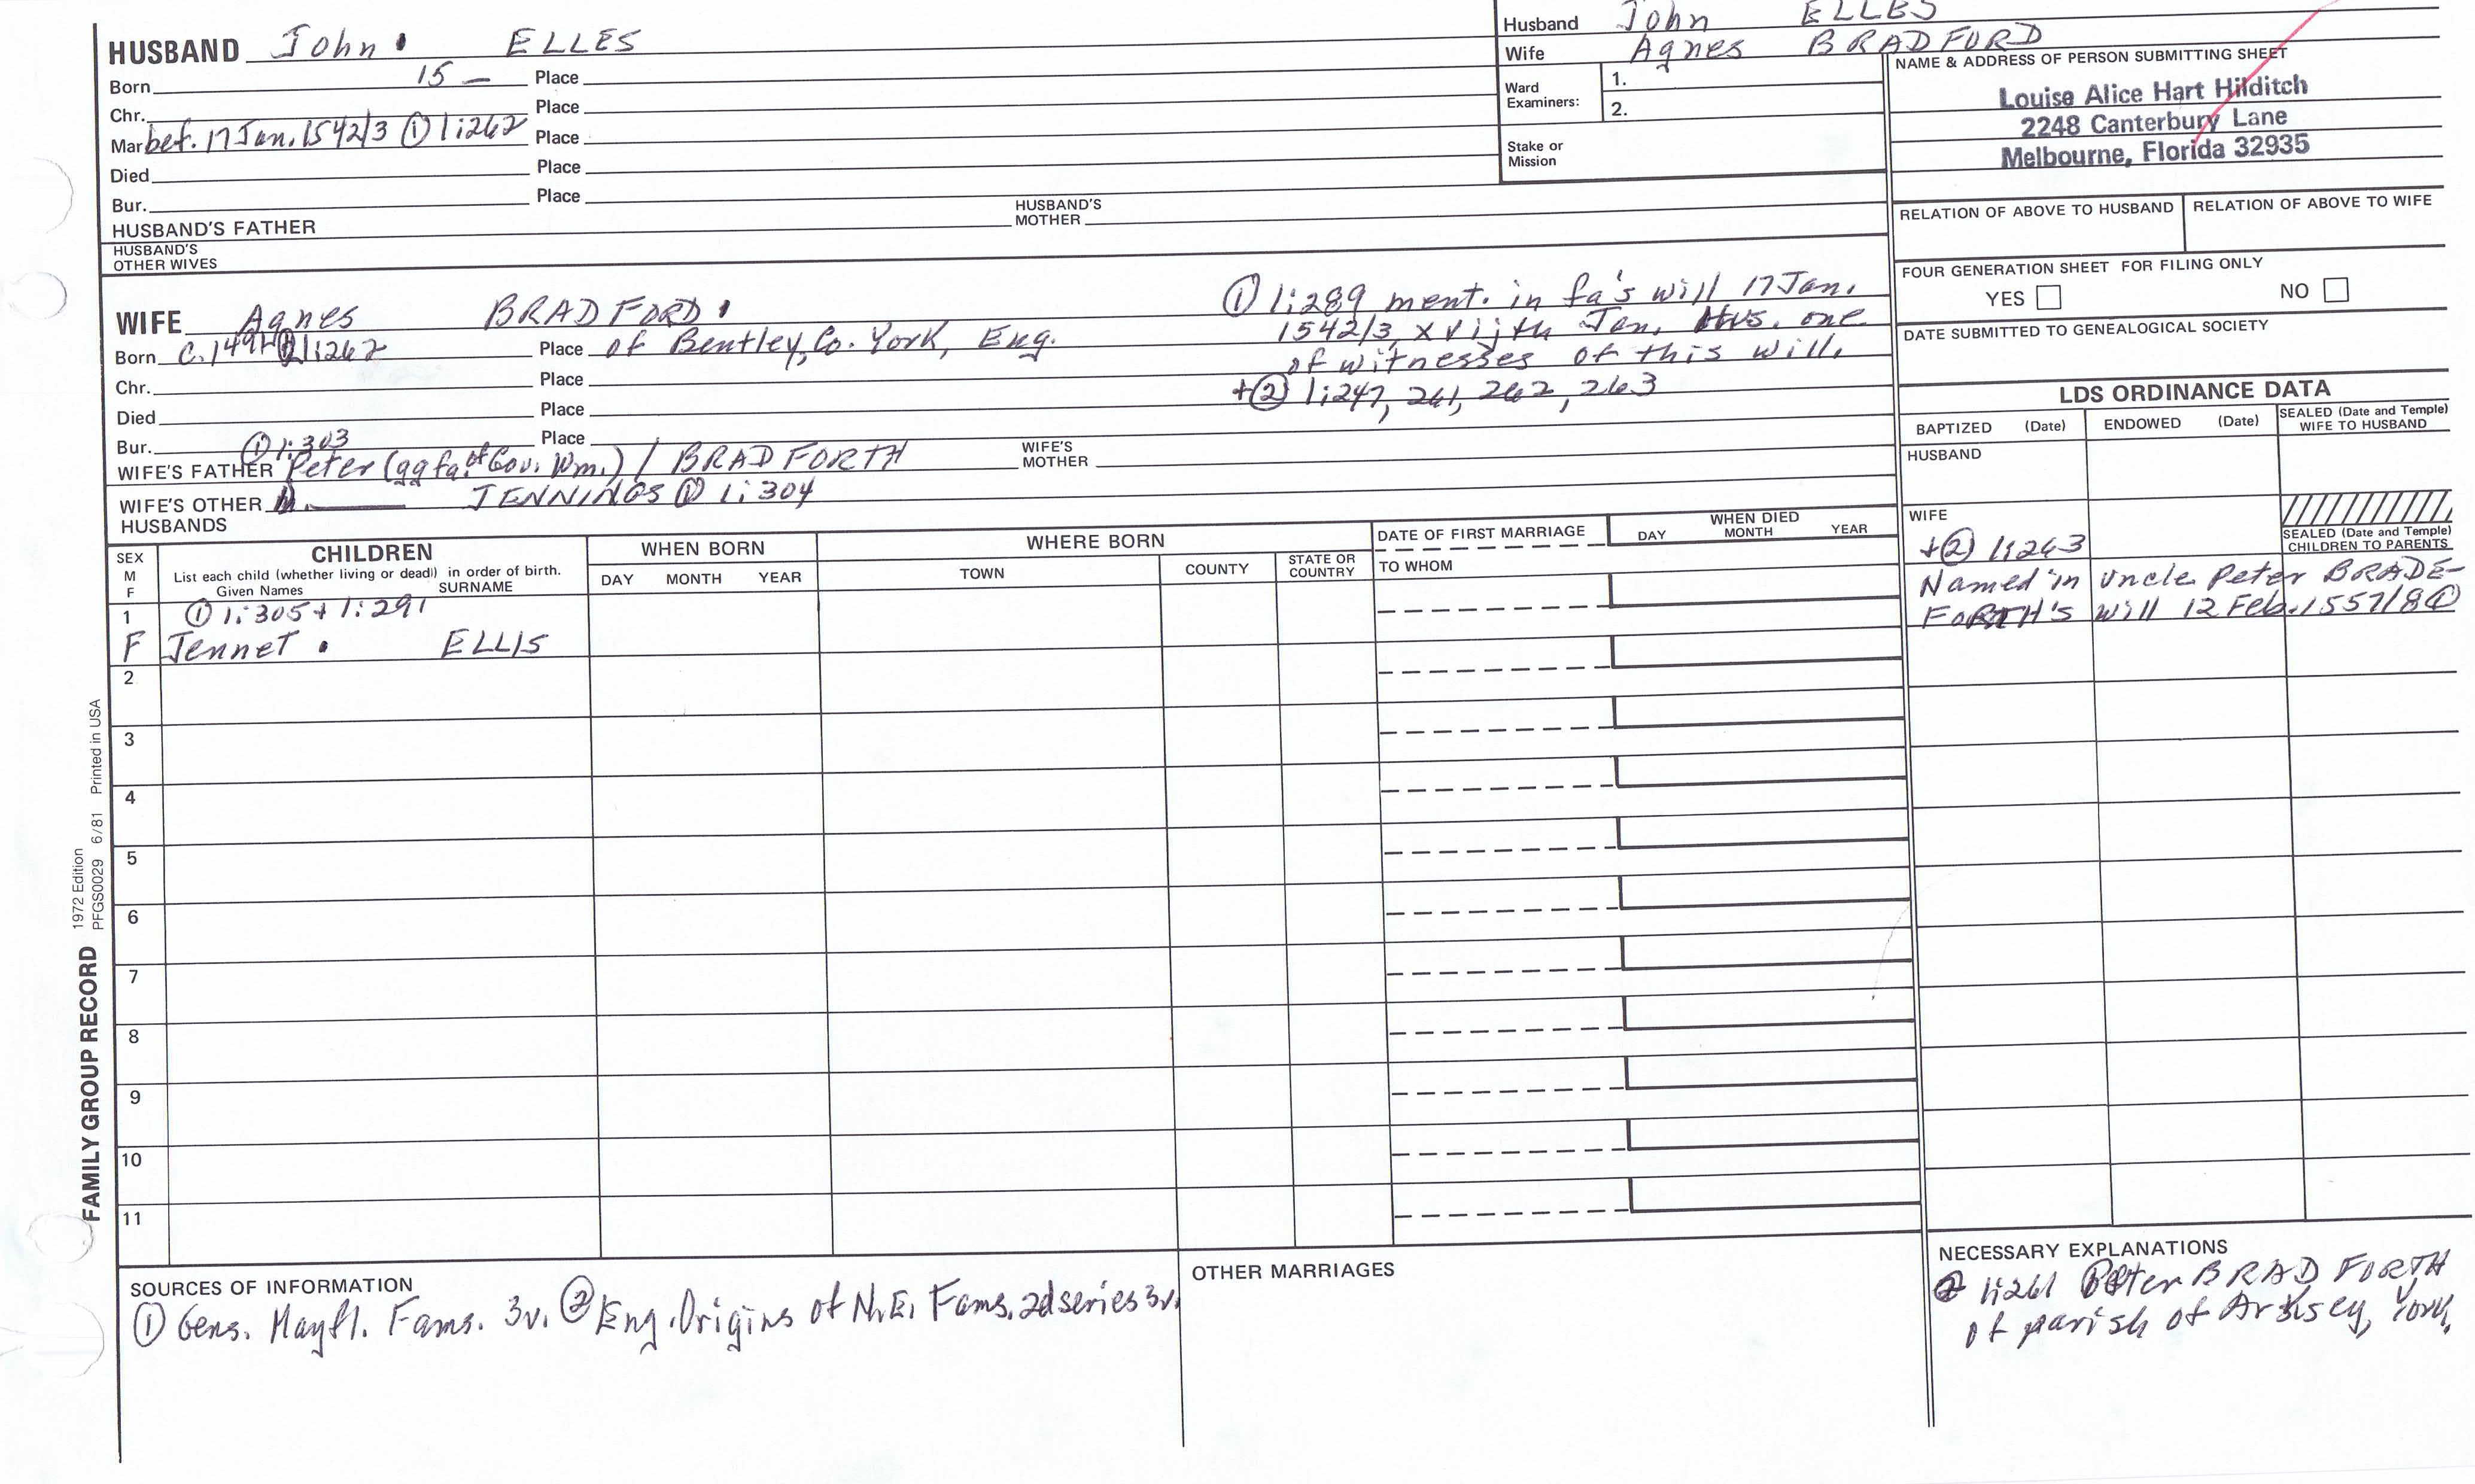 HUSBAND John ELLES
Born 15 — Place
Chr. Place
Mar bef. 17 Jan. 1542/3 ① 1:262 Place
Died Place
Bur. Place
HUSBAND'S FATHER HUSBAND'S MOTHER
HUSBAND'S OTHER WIVES
Husband John ELLES
Wife Agnes BRADFORD
Ward Examiners: 1.
2.
Stake or Mission
NAME & ADDRESS OF PERSON SUBMITTING SHEET
Louise Alice Hart Hilditch
2248 Canterbury Lane
Melbourne, Florida 32935
RELATION OF ABOVE TO HUSBAND RELATION OF ABOVE TO WIFE
FOUR GENERATION SHEET FOR FILING ONLY
YES NO
DATE SUBMITTED TO GENEALOGICAL SOCIETY
WIFE Agnes BRADFORD
Born 1:262 Place of Bentley, Co. York, Eng.
Chr. Place
Died Place
Bur. ① 1:303 Place
WIFE'S FATHER Peter (ggfa. of Gov. Wm.) / BRADFORTH WIFE'S MOTHER
WIFE'S OTHER HUSBANDS JENNINGS ① 1:304
① 1:289 ment. in fa's will 17 Jan.
1542/3, xvijth Jan. one
of witnesses of this will.
+② 1:247, 261, 262, 263
LDS ORDINANCE DATA
BAPTIZED (Date) ENDOWED (Date) SEALED (Date and Temple) WIFE TO HUSBAND
HUSBAND
WIFE
SEALED (Date and Temple) CHILDREN TO PARENTS
+② 1:263
Named in Uncle Peter BRADE-
FORTH's will 12 Feb. 1557/8 ①
SEX M F
CHILDREN
List each child (whether living or dead) in order of birth.
Given Names SURNAME
WHEN BORN
DAY MONTH YEAR
WHERE BORN
TOWN COUNTY STATE OR COUNTRY
DATE OF FIRST MARRIAGE
TO WHOM
WHEN DIED
DAY MONTH YEAR
1 ① 1:305 + 1:291
F Jennet ELLIS
2
3
4
5
6
7
8
9
10
11
FAMILY GROUP RECORD
1972 Edition
PFGS0029 6/81 Printed in USA
SOURCES OF INFORMATION
① Gens. Mayfl. Fams. 3v. ② Eng. Origins of N.E. Fams. 2d series 3v.
OTHER MARRIAGES
NECESSARY EXPLANATIONS
② 1:261 Peter BRADFORTH
of parish of Arksey, York.